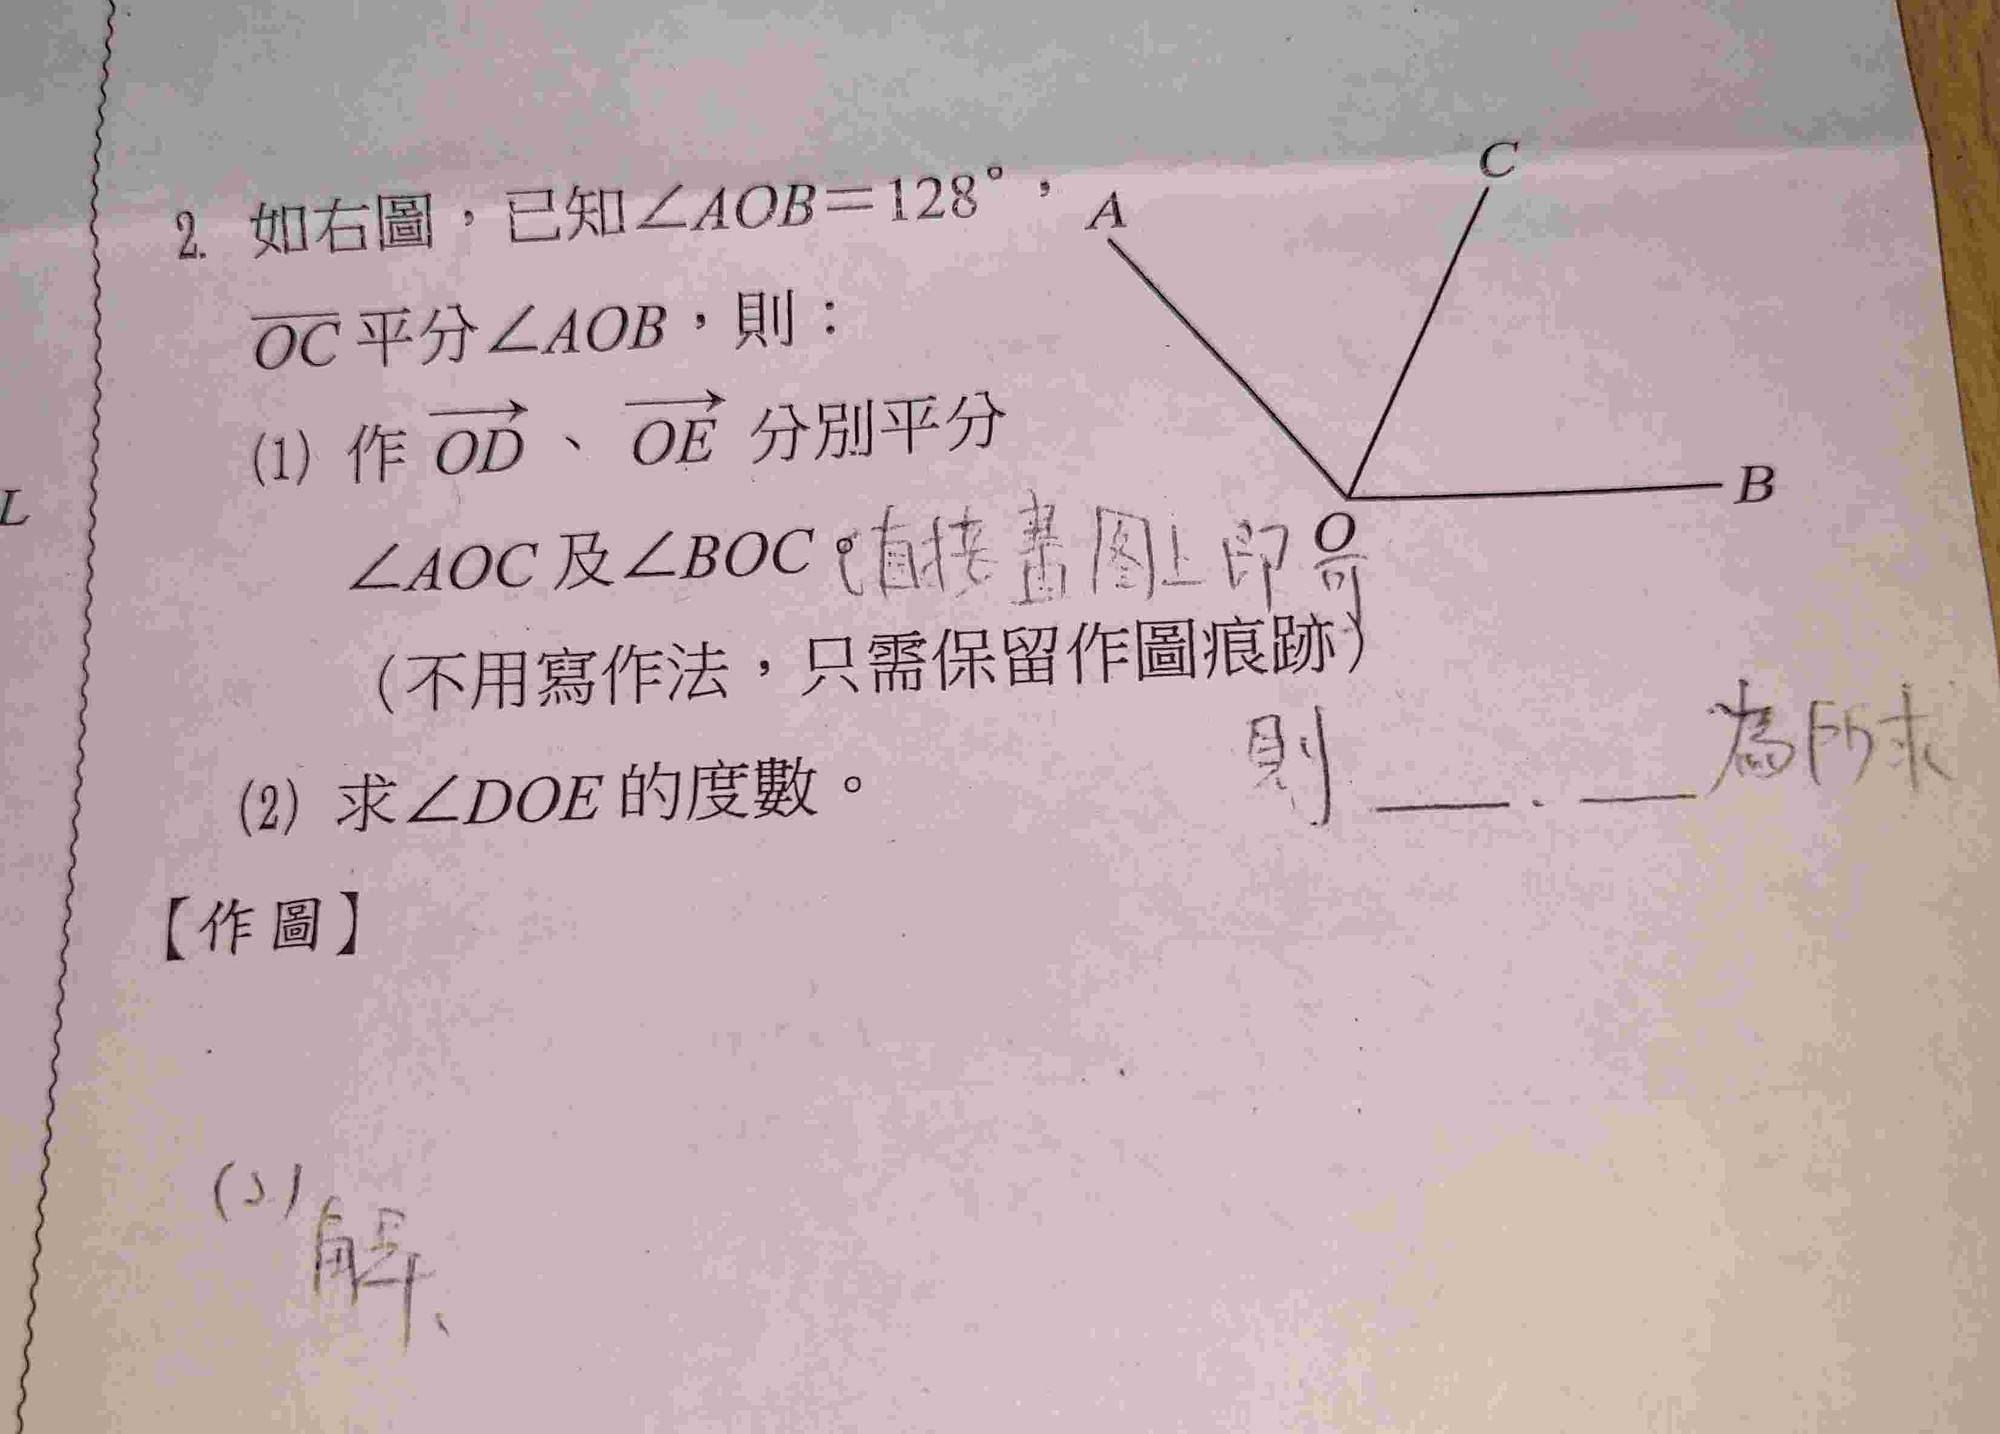 2. 如右圖，已知∠AOB＝128°，
OC平分∠AOB，則：
(1) 作 OD、OE 分別平分
∠AOC及∠BOC。直接畫图上即可
(不用寫作法，只需保留作圖痕跡)
則 ___．___為所求
(2) 求∠DOE的度數。
【作圖】
(2)
解、
A
C
B
O
L